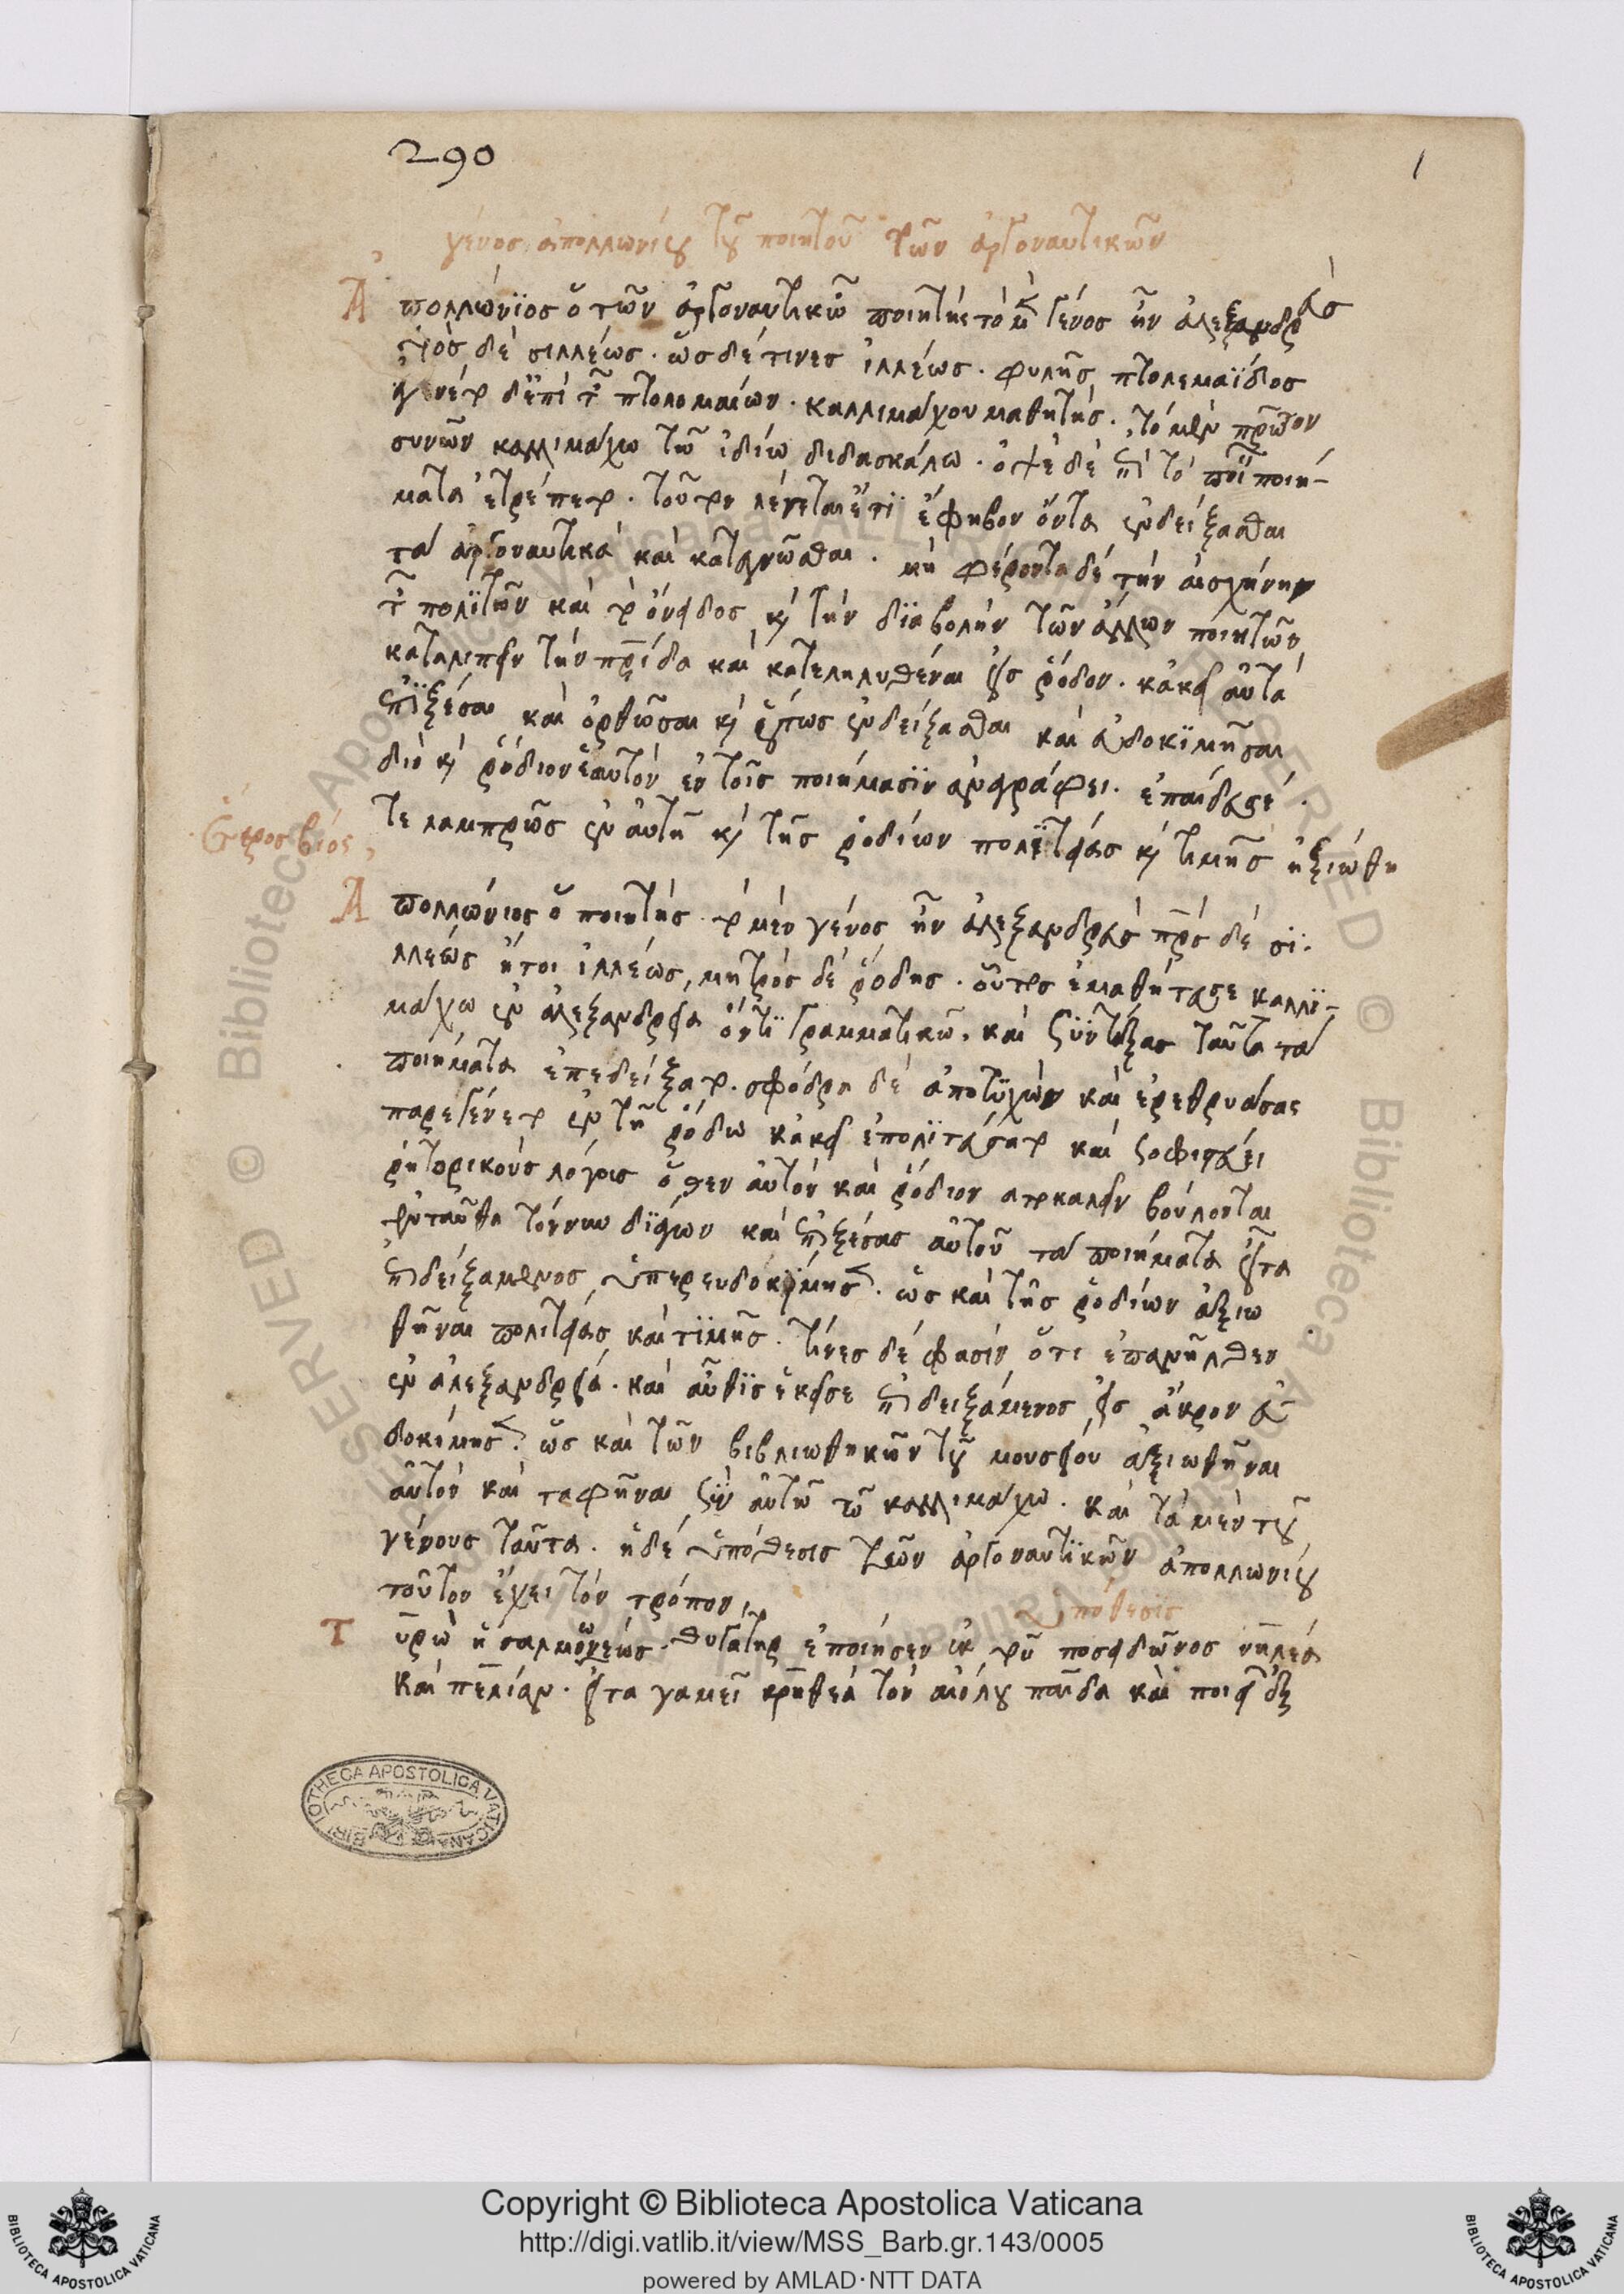 290
1
γένος ἀπολλωνίου τοῦ ποιητοῦ τῶν ἀργοναυτικῶν
Ἀπολλώνϊος ὁ τῶν ἀργοναυτικῶν ποιητὴς τὸ μὲν γένος ἦν ἀλεξανδρεὺς
υἱὸς δὲ σιλλέως. ὥς δέ τινες ἰλλέως. φυλῆς πτολεμαΐδος
ἐγένετο δ' ἐπὶ τῶν πτολομαίων. καλλιμάχου μαθητής. τὸ μὲν πρῶτον
συνὼν καλλιμάχω τῶ ἰδίω διδασκάλω. ὀψὲ δὲ ἐπὶ τὸ ποιεῖν ποιή-
ματα ἐτρέπετο. τοῦτον λέγεται ἔτϊ ἔφηβον ὄντα ἐνδείξασθαι
τὰ ἀργοναυτικὰ καὶ κατεγνῶσθαι. μὴ φέροντα δὲ τὴν αἰσχύνην
τῶν πολϊτῶν καὶ τὸ ὄνειδος καὶ τὴν δϊαβολὴν τῶν ἄλλων ποιητῶν
καταλιπεῖν τὴν πρίδα καὶ κατεληλυθέναι εἰς ῥόδον. κἀκεῖ αὐτὰ
ἐπϊξέσαι καὶ ὀρθῶσαι καὶ οὕτως ἐνδείξασθαι καὶ εὐδοκϊμῆσαι
διὸ καὶ ῥόδιον ἑαυτὸν ἐν τοῖς ποιήμασϊν ἀναγράφει. ἐπαίδευσέ.
τε λαμπρῶς ἐν αὐτῆ καὶ τῆς ῥοδίων πολϊτείας καὶ τιμῆς ἠξιώθη
ἕτερος βίος,
Ἀπολλώνιος ὁ ποιητὴς τὸ μὲν γένος ἦν ἀλεξανδρεὺς πρς δὲ σϊ-
λλέως ἤτοι ἰλλέως, μητρὸς δὲ ῥόδης. οὗτος ἐμαθήτευσε καλλϊ-
μάχω ἐν ἀλεξανδρεία ὄντϊ γραμματικῶ. καὶ συντάξας ταῦτα τὰ
ποιήματα ἐπεδείξατο. σφόδρα δὲ ἀποτυχὼν καὶ ἐρεθρυάσας
παρεγένετο ἐν τῆ ῥόδω κἀκεῖ ἐπολϊτεύσατο καὶ σοφιστεύει
ῥητορικοὺς λόγους ὅθεν αὐτὸν καὶ ῥόδιον ἀποκαλεῖν βούλονται
ἐνταῦθα τοίνυν δϊάγων καὶ ἐπιξέσας αὐτοῦ τὰ ποιήματα εἶτα
ἐπιδειξάμενος ὑπερευδοκίμησεν. ὡς καὶ τῆς ῥοδίων ἀξιω
θῆναι πολιτείας καὶ τϊμῆς. τινὲς δέ φασϊν ὅτι ἐπανῆλθεν
ἐν ἀλεξανδρεία. καὶ αὖθϊς ἐκεῖσε ἐπιδειξάμενος εἰς ἄκρον εὐ
δοκίμησεν. ὡς καὶ τῶν βιβλιωθηκῶν τοῦ μουσείου ἀξιωθῆναι
αὐτὸν καὶ ταφῆναι σὺν αὐτῶ τῶ καλλιμάχω. καὶ τὰ μὲν τοῦ
γένους ταῦτα. ἡ δὲ ὑπόθεσις τῶν ἀργοναυτϊκῶν ἀπολλωνίου
τοῦτον ἔχει τὸν τρόπον,
ὑπόθεσις
Τυρὼ ἡ σαλμονέως θυγάτηρ ἐποίησεν ἐκ τοῦ ποσειδῶνος νηλέα
καὶ πελίαν. εἶτα γαμεῖ κρηθέα τὸν αἰόλου παῖδα καὶ ποιεῖ ἐξ
BIBLIOTHECA APOSTOLICA VATICANA
Copyright © Biblioteca Apostolica Vaticana
http://digi.vatlib.it/view/MSS_Barb.gr.143/0005
powered by AMLAD·NTT DATA